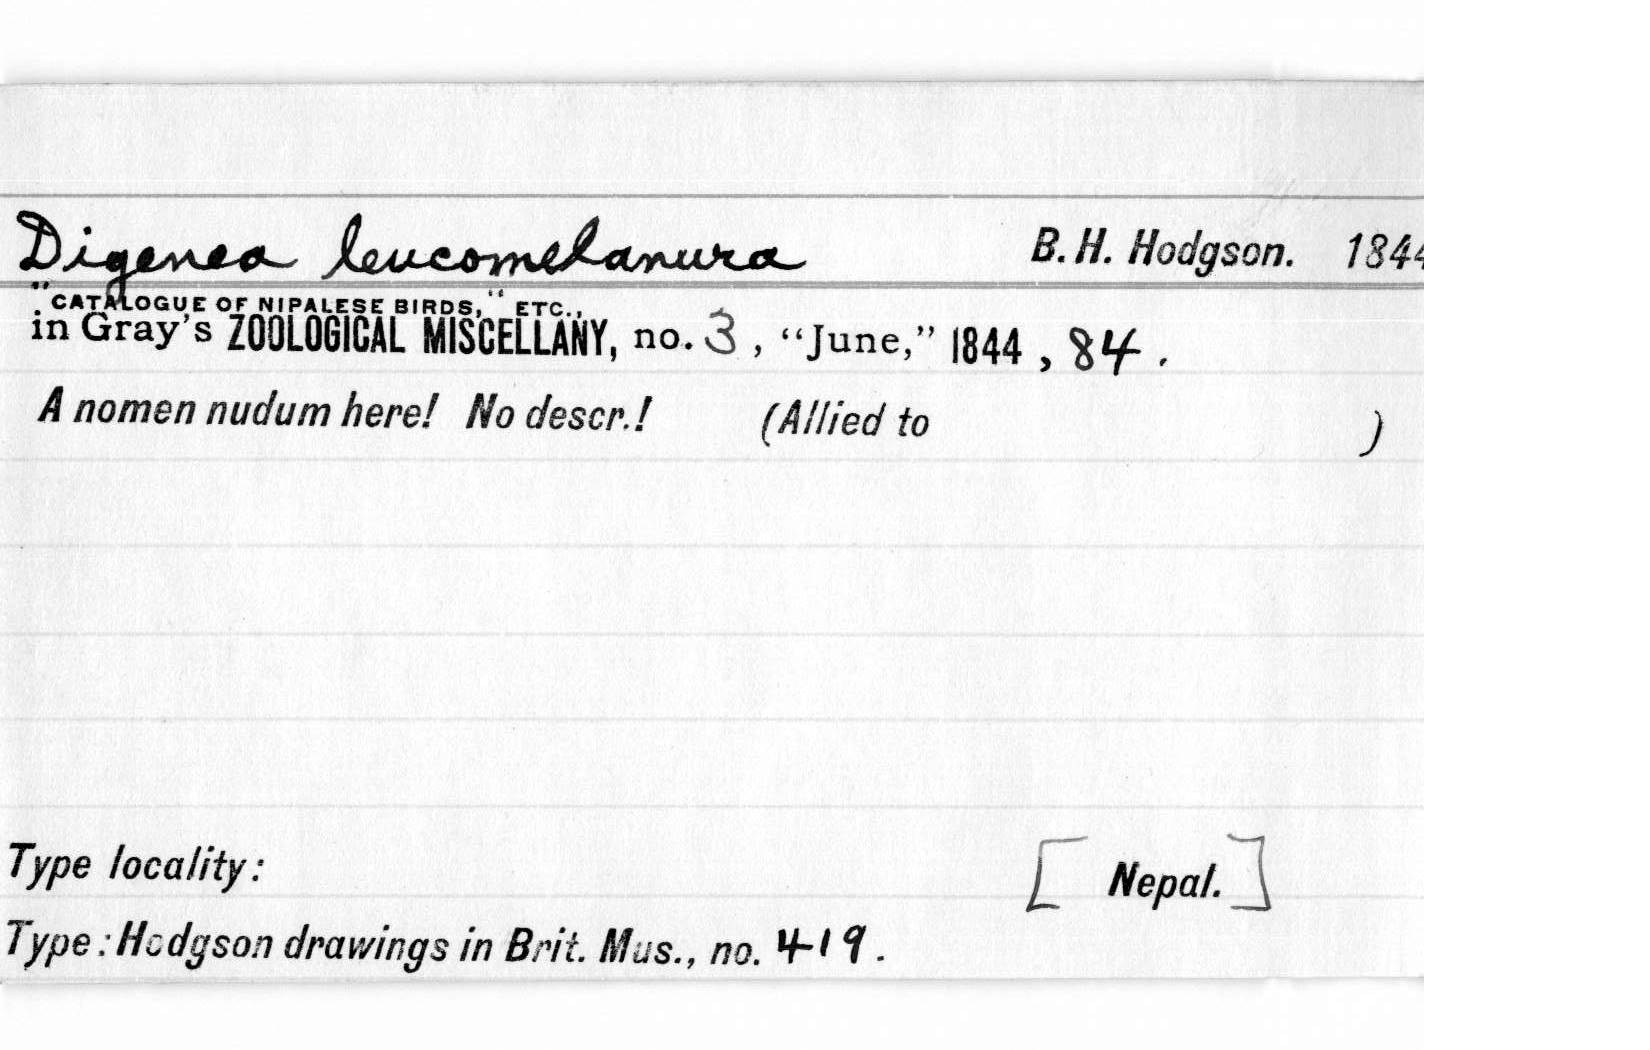 Digenea leucomelanura B. H. Hodgson. 1844
"CATALOGUE OF NIPALESE BIRDS," ETC.,
in Gray's ZOOLOGICAL MISCELLANY, no. 3, "June," 1844, 84.
A nomen nudum here! No descr.! (Allied to )
Type locality: [Nepal.]
Type: Hodgson drawings in Brit. Mus., no. 419.